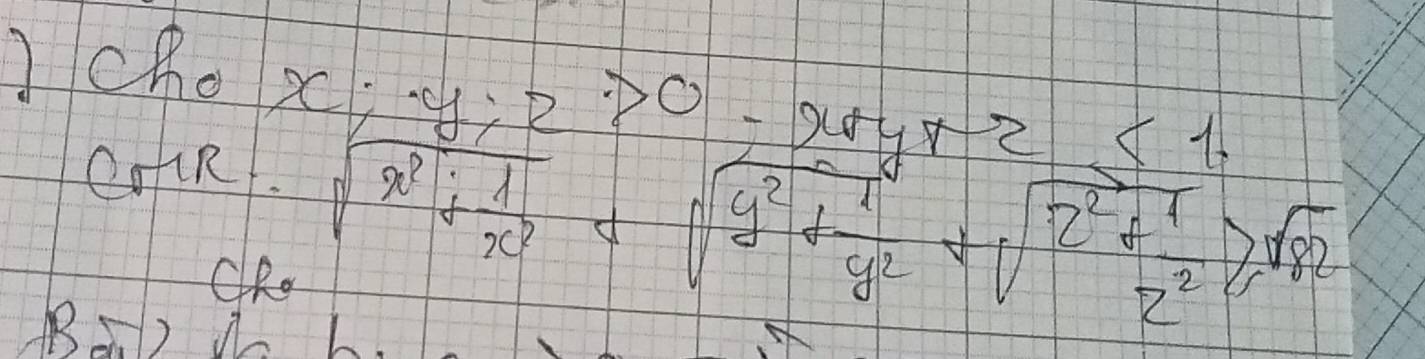 ) Cho x; y; z > 0. x+y+z < 1.
CMR. √(x² + 1/x²) + √(y² + 1/y²) + √(z² + 1/z²) ≥ √82
Cho